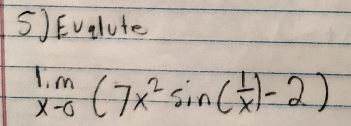 5) Evalute
lim x→0 (7x² sin(1/x) - 2)